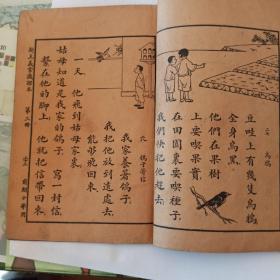 五 烏鴉
豆畦上有幾隻烏鴉
全身烏黑
他們在果樹
上要喫果實
在田園裏要喫種子
我們快把他趕去
六 鴿子帶信
我家養著鴿子
我把他放到遠處去
能夠飛回來
一天 他飛到姑母家裏
姑母知道是我家的鴿子 寫一封信
繫在他的脚上 他就把信帶回來
新主義常識課本 第二冊
前期小學用